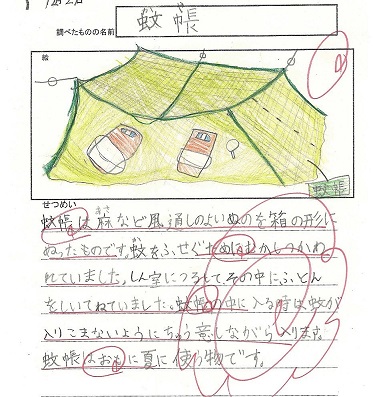 調べたものの名前 蚊帳
絵
蚊帳
せつめい
あさ
蚊帳は麻など風通しのよいぬのを箱の形に
ぬったものです。蚊をふせぐためにむかしつかわ
れていました。しん室につるしてその中にふとん
をしいてねていました。蚊帳の中に入る時は蚊が
入りこまないようにちゅう意しながら入ります。
蚊帳はおもに夏に使う物です。